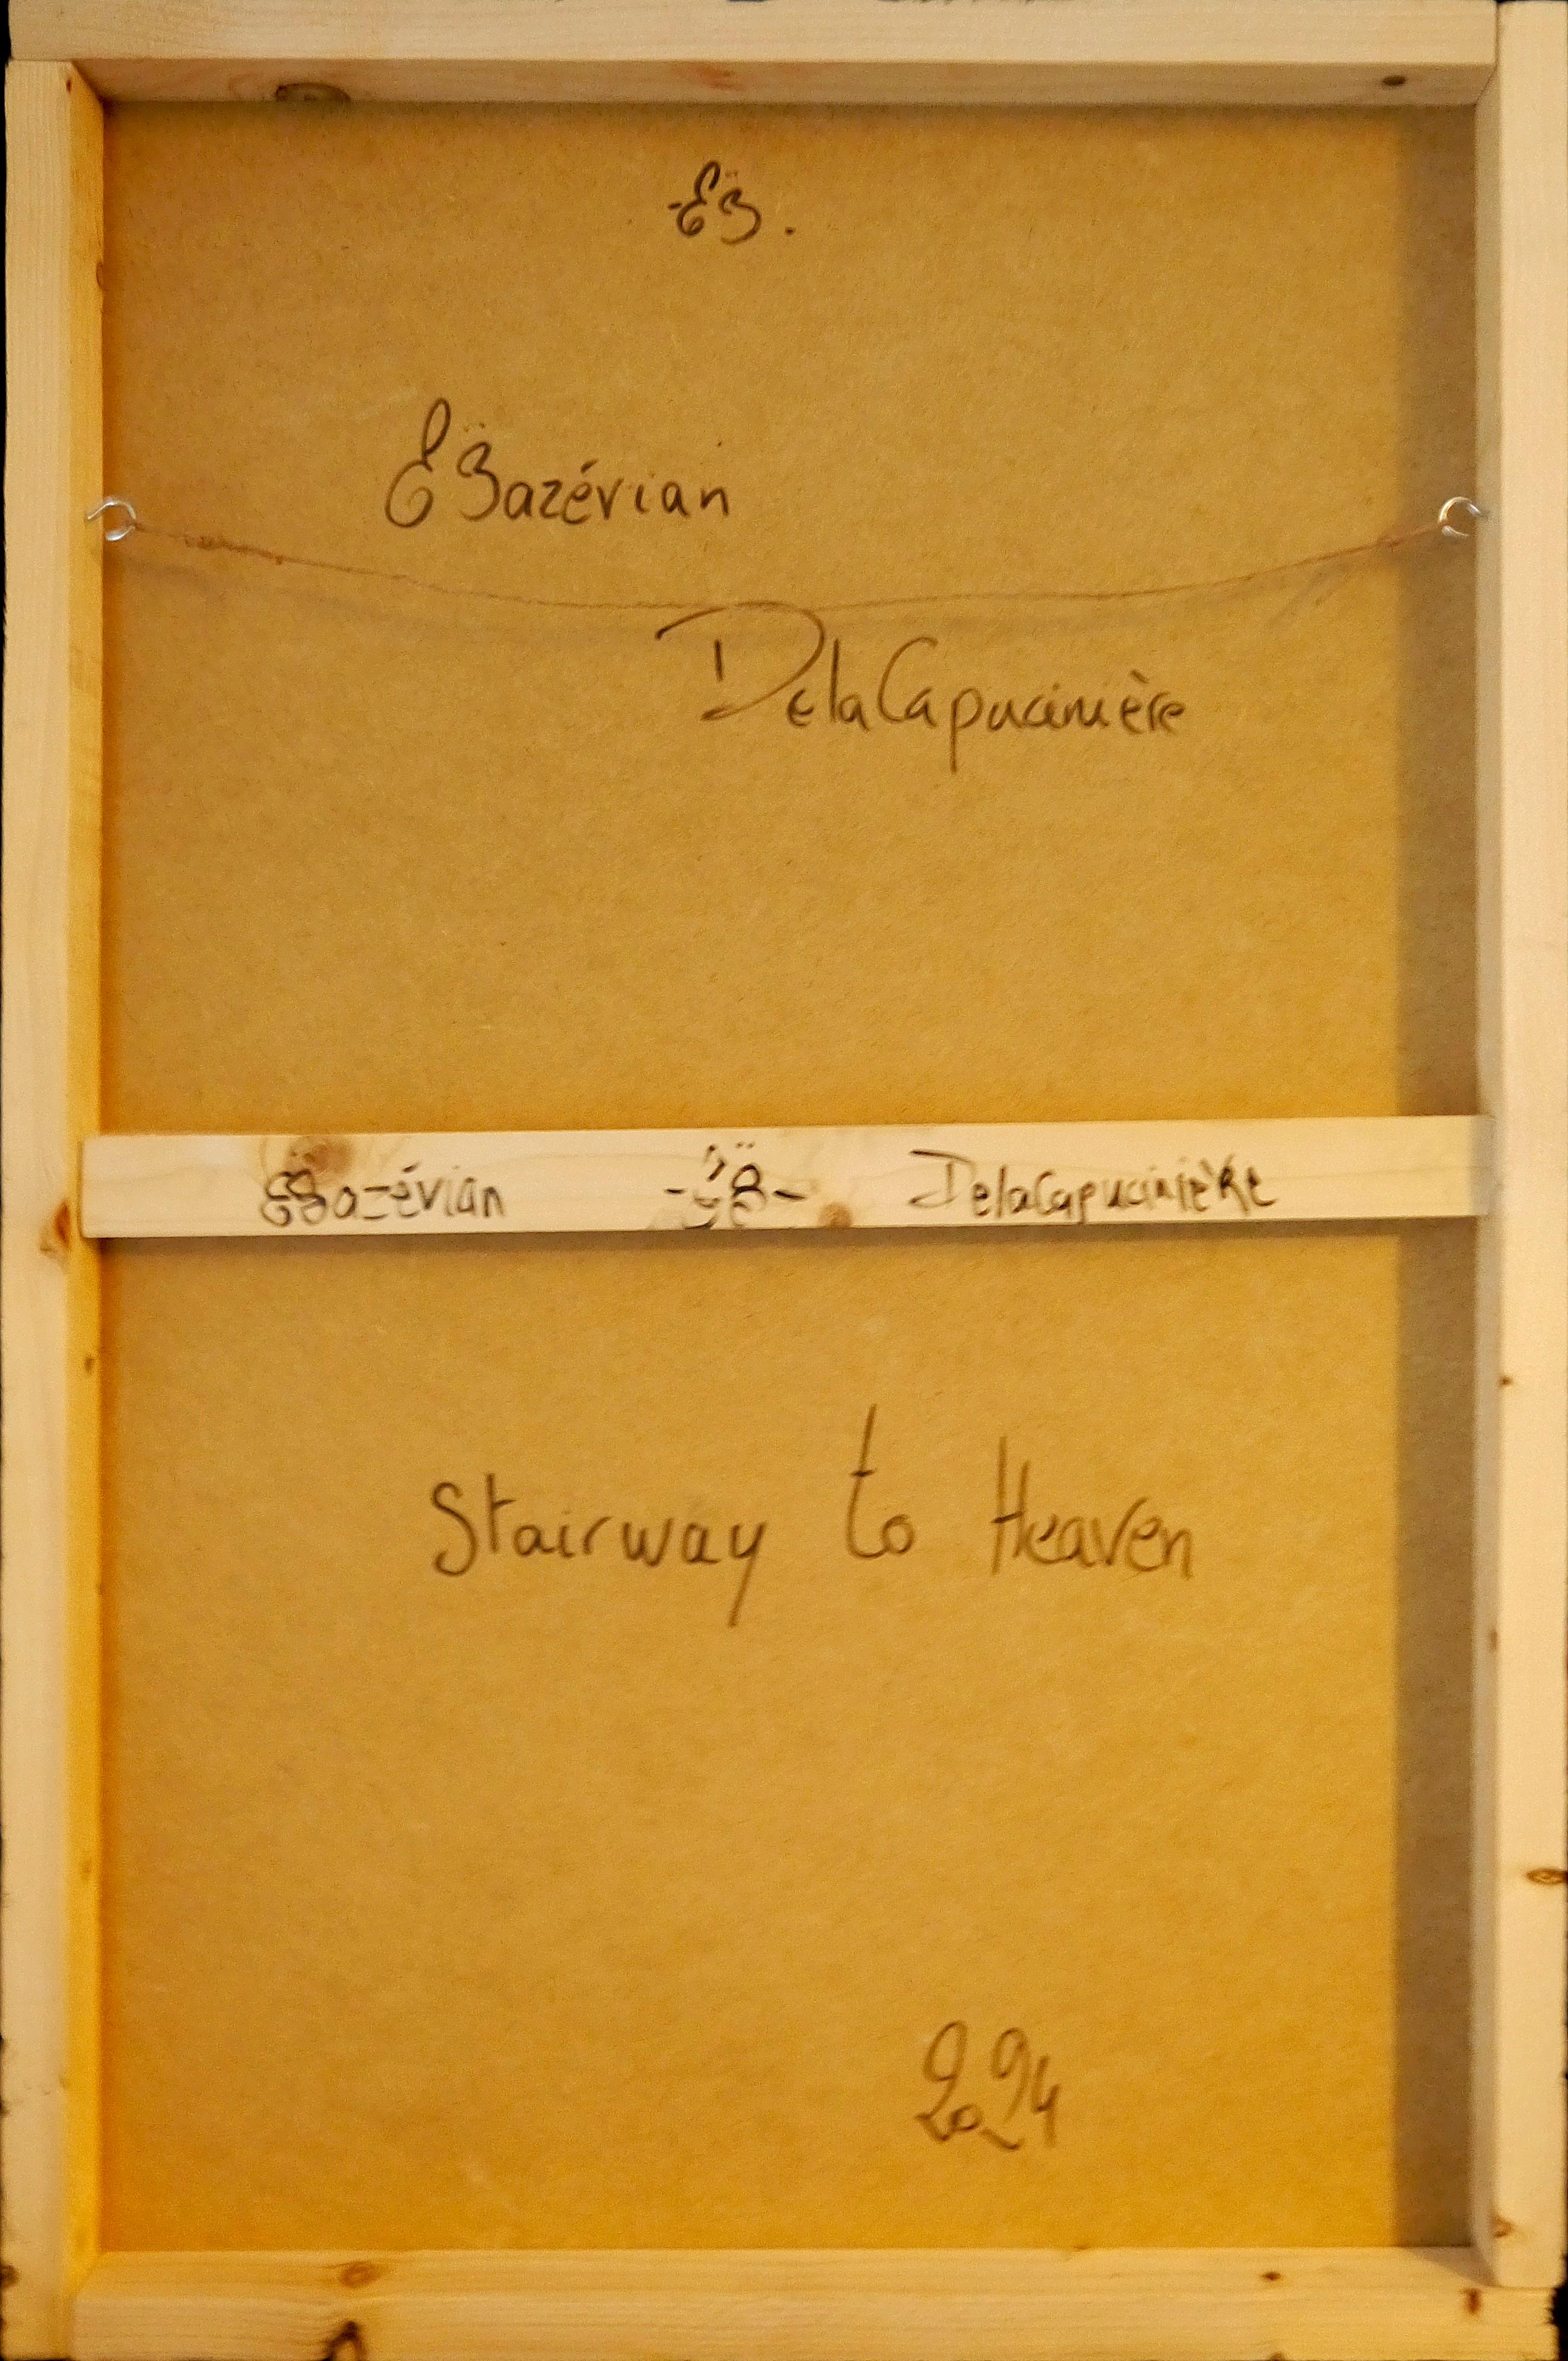 -EB̈.
EB̈azévian
DelaCapucinière
EB̈azévian -EB̈- DelaCapucinière
Stairway to Heaven
2024